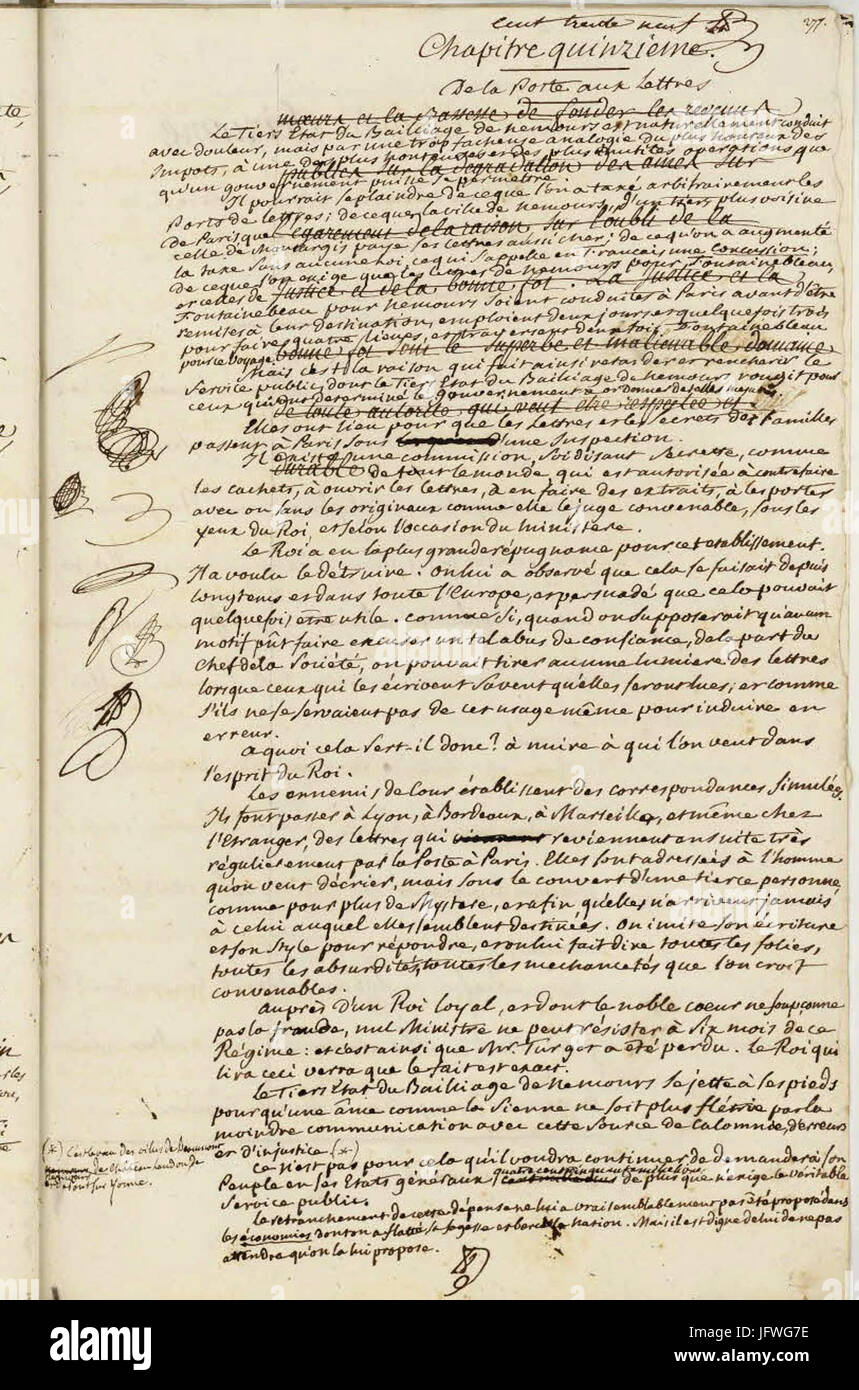 cent trente neuf
277.
Chapitre quinzieme.
De la Poste aux Lettres
mœurs et la Bassesse de fonder les revenus
Le Tiers Etat du Bailliage de nemours est naturellement conduit
avec douleur, mais par une trop facheuse analogie du plus honteux des
Impots, à une des plus honteuses et des plus inutiles operations que
publics sur la dégradation des ames sur
qu'un gouvernement puisse se permettre.
Il pourrait se plaindre de ce que l'on a taxé arbitrairement les
Ports de lettres; de ce que la ville de nemours, d'un tiers plus voisine
de Paris que l'égarement de la raison, sur l'oubli de la
celle de montargis paye ses lettres aussi cher; de ce qu'on a augmenté
la taxe sans aucune loi, ce qui s'appelle en Francais une concussion;
de ce que l'on exige que les lettres de nemours pour Fontainebleau,
et celles de Justice et de la bonne foi. La Justice et la
Fontainebleau pour nemours soient conduites à Paris avant d'être
remises à leur destination, emploient deux jours et quelquefois trois
pour faire quatre lieues, et traversent deux fois Fontainebleau
pour ce voyage. bonne foi sont le superbe et inalienable domaine
Mais c'est la raison qui fait ainsi retarder et rencherir le
Service public, dont le Tiers Etat du Bailliage de nemours rougit pour
ceux qui ont determiné le gouvernement à ordonner de telles mesures.
de toute autorité qui veut etre respectée et
Elles ont lieu pour que les Lettres et les secrets des Familles
passent à Paris sous d'une Inspection.
Il existe une commission, soi disant Secrette, comme
durable de tout le monde qui est autorisée à contrefaire
les cachets, à ouvrir les lettres, à en faire des extraits, à les porter
avec ou sans les originaux comme elle le juge convenable, sous les
yeux du Roi, et selon l'occasion du ministere.
Le Roi a eu la plus grande répugnance pour cet etablissement.
Il a voulu le détruire. On lui a observé que cela se faisait depuis
longtems et dans toute l'Europe, et persuadé que cela pouvait
quelquefois être utile. comme si, quand on supposerait qu'aucun
motif pût faire excuser un tel abus de confiance, de la part du
chef de la Société, on pouvait tirer aucune lumiere des lettres
lorsque ceux qui les écrivent savent qu'elles seront lues; et comme
s'ils ne se servaient pas de cet usage même pour induire en
erreur.
a quoi cela sert-il donc? à nuire à qui l'on veut dans
l'esprit du Roi.
Les ennemis de Cour établissent des correspondances simulées.
Ils font passer à Lyon, à Bordeaux, à Marseille, et même chez
l'Etranger, des lettres qui viennent reviennent ensuite très
régulierement par la Poste à Paris. Elles sont adressées à l'homme
qu'on veut décrier, mais sous le couvert d'une tierce personne,
comme pour plus de Mystere, et afin qu'elles n'arrivent jamais
à celui auquel elles semblent destinées. On imite son écriture
et son style pour répondre, et on lui fait dire toutes les folies,
toutes les absurdités, toutes les mechancetés que l'on croit
convenables.
Auprès d'un Roi loyal, et dont le noble coeur ne soupçonne
pas la fraude, nul Ministre ne peut résister à six mois de ce
Régime: et c'est ainsi que Mr. Turgot a été perdu. Le Roi qui
lira ceci verra que le fait est exact.
Le Tiers Etat du Bailliage de nemours se jette à ses pieds
pour qu'une âme comme la Sienne ne soit plus flétrie par la
moindre communication avec cette source de calomnie, d'erreurs
et d'injustice (*)
Ce n'est pas pour cela qu'il voudra continuer de demander à son
quatre cent cinquante mille livres
Peuple en ses Etats généraux de plus que n'exige le véritable
Service public.
Le retranchement de cette dépense ne lui a vraisemblablement pas été proposé dans
les économies dont on a flatté sa sagesse et bercé la nation. Mais il est digne de lui de ne pas
attendre qu'on la lui propose.
(*) C'est le vœu des villes de Beaumont
de Château Landon de
et de Pont sur yonne.
a
alamy stock photo
Image ID: JFWG7E
www.alamy.com